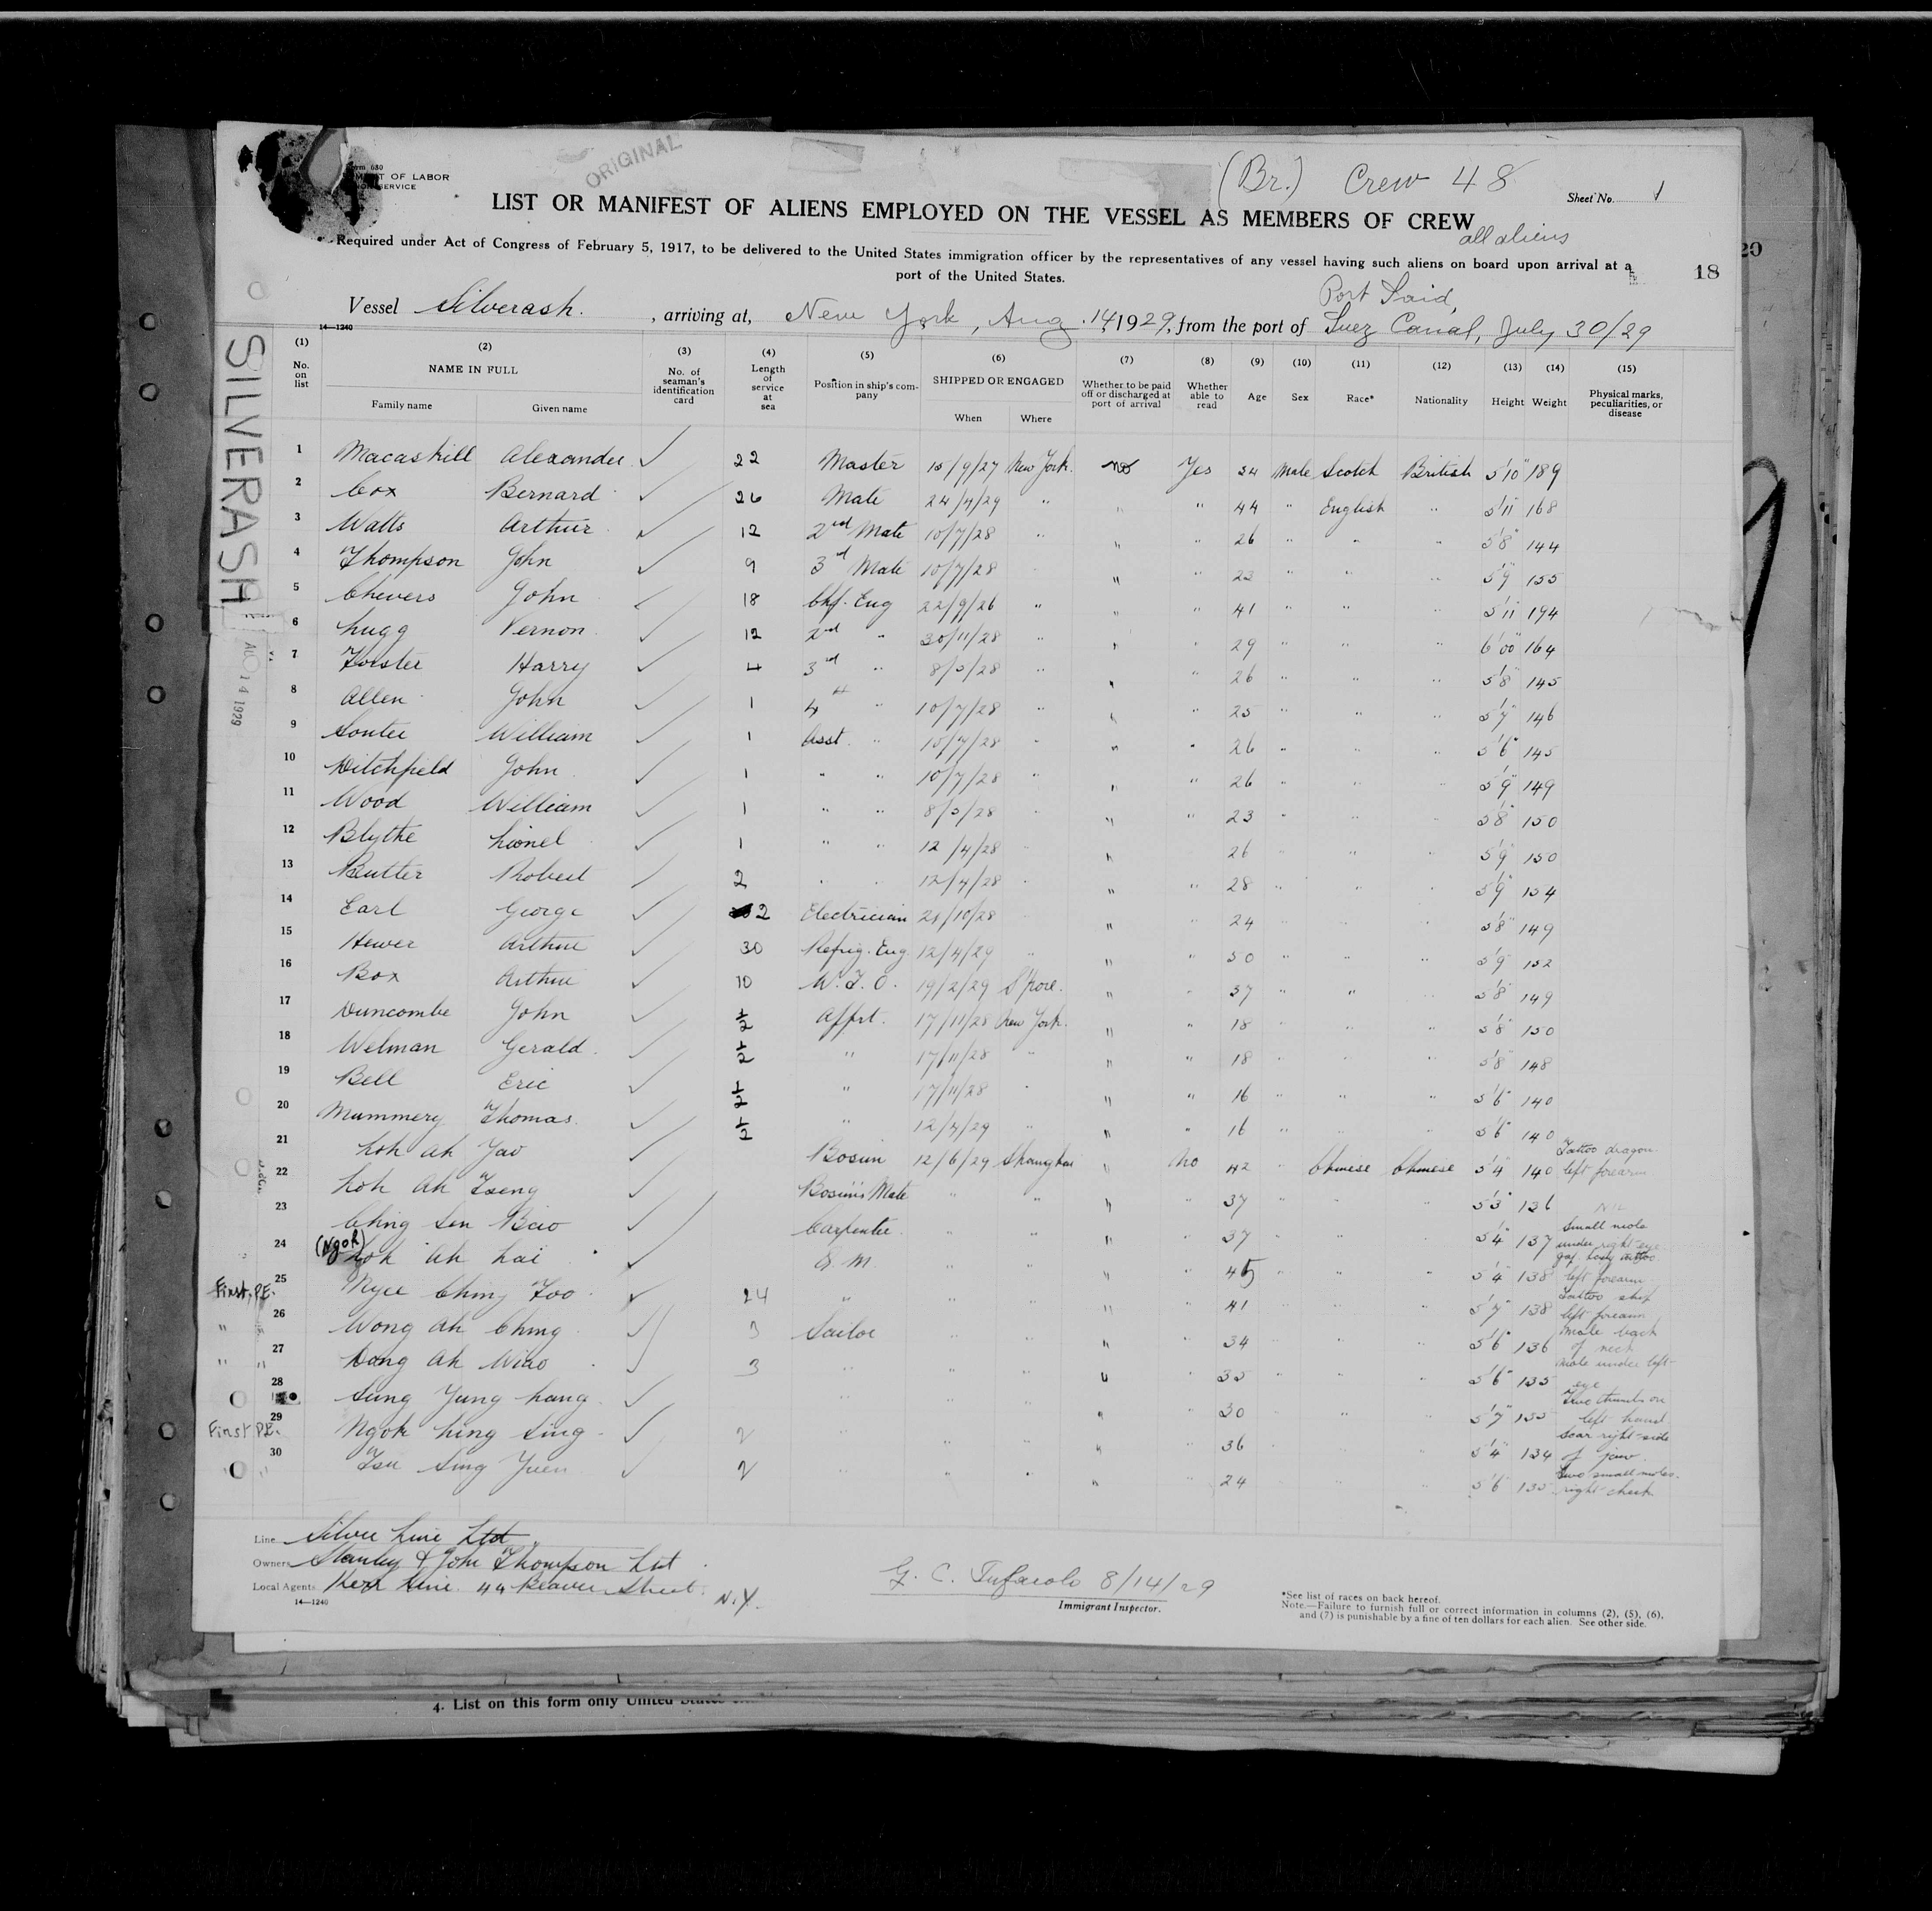 ORIGINAL
(Br.) Crew 48
Sheet No. 1
rm 680
MENT OF LABOR
SERVICE
LIST OR MANIFEST OF ALIENS EMPLOYED ON THE VESSEL AS MEMBERS OF CREW
all aliens
Required under Act of Congress of February 5, 1917, to be delivered to the United States immigration officer by the representatives of any vessel having such aliens on board upon arrival at a
port of the United States.
18
20
Port Said,
Vessel Silverash. , arriving at, New York, Aug. 14, 1929, from the port of Suez Canal, July 30/29
14—1240
SILVERASH
AUG 14 1929
(1) No. on list (2) NAME IN FULL Family name Given name (3) No. of seaman's identification card (4) Length of service at sea (5) Position in ship's company (6) SHIPPED OR ENGAGED When Where (7) Whether to be paid off or discharged at port of arrival (8) Whether able to read (9) Age (10) Sex (11) Race* (12) Nationality (13) Height (14) Weight (15) Physical marks, peculiarities, or disease
1 Macaskill Alexander ✓ 22 Master 10/9/27 New York. no Yes 34 Male Scotch British 5'10" 189
2 Cox Bernard ✓ 26 Mate 24/4/29 " " " 44 " English " 5'11" 168
3 Watts Arthur ✓ 12 2nd Mate 10/7/28 " " " 26 " " " 5'8" 144
4 Thompson John ✓ 9 3rd Mate 10/7/28 " " 23 " " " 5'9" 155
5 Chevers John ✓ 18 Chf. Eng 22/9/26 " " " 41 " " " 5'11" 194
6 Lugg Vernon ✓ 12 2nd " 30/11/28 " " " 29 " " " 6'00" 164
7 Forster Harry ✓ 4 3rd " 8/5/28 " " " 26 " " " 5'8" 145
8 Allen John ✓ 1 4th " 10/7/28 " " " 25 " " " 5'7" 146
9 Souter William ✓ 1 Asst. " 10/7/28 " " " 26 " " " 5'6" 145
10 Ditchfield John ✓ 1 " " 10/7/28 " " " 26 " " " 5'9" 149
11 Wood William ✓ 1 " " 8/5/28 " " " 23 " " " 5'8" 150
12 Blythe Lionel ✓ 1 " " 12/4/28 " " 26 " " " 5'9" 150
13 Butler Robert ✓ 2 " " 12/4/28 " " " 28 " " " 5'9" 154
14 Earl George ✓ 2 Electrician 21/10/28 " " 24 " " " 5'8" 149
15 Hewer Arthur ✓ 30 Refrig. Eng. 12/4/29 " " " 50 " " " 5'9" 152
16 Box Arthur ✓ 10 W.T.O. 19/2/29 S'pore. " " 37 " " " 5'8" 149
17 Duncombe John ✓ 1/2 Apprt. 17/11/28 New York. " " 18 " " " 5'8" 150
18 Welman Gerald ✓ 1/2 " 17/11/28 " " " 18 " " " 5'8" 148
19 Bell Eric ✓ 1/2 " 17/11/28 " " " 16 " " " 5'6" 140
20 Mummery Thomas ✓ 1/2 " 12/4/29 " " " 16 " " " 5'6" 140
21 Loh Ah Yao ✓ Bosun 12/6/29 Shanghai " No 42 " Chinese Chinese 5'4" 140 Tattoo dragon left forearm
22 Loh Ah Tseng ✓ Bosun's Mate " " " 37 " " " 5'3" 136 Nil
23 Ching Sen Bao ✓ Carpenter " " " " 37 " " " 5'4" 137 Small mole under right eye
24 (Ngoh) Loh Ah Lai ✓ Q.M. " " " " 45 " " " 5'4" 138 left forearm
First, P.E. 25 Myee Ching Foo ✓ 24 " " " " " 41 " " " 5'7" 138 Tattoo ship left forearm
" 26 Wong Ah Ching ✓ 3 Sailor " " " " 34 " " " 5'6" 136 Mole back of neck
" " 27 Dong Ah Miao ✓ 3 " " " " " 35 " " " 5'6" 135 Mole under left eye
28 Sung Yung Lang ✓ " " " " " 30 " " " 5'7" 135 Two thumbs on left hand
First P.E. 29 Ngoh Ling Sing ✓ 2 " " " " " 36 5'4" 134 Scar right side of jaw
" " 30 Tsu Sing Yuen ✓ 2 " " " " " 24 " " " 5'6" 135 Two small moles right cheek
Line Silver Line Ltd.
Owners Stanley & John Thompson Ltd.
Local Agents Kerr Line. 44 Beaver Street. N.Y.
14—1240
G. C. Tufarolo 8/14/29
Immigrant Inspector.
*See list of races on back hereof.
Note.—Failure to furnish full or correct information in columns (2), (5), (6),
and (7) is punishable by a fine of ten dollars for each alien. See other side.
4. List on this form only United States